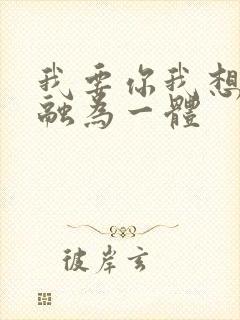 我要你我想
融為一體
彼岸玄